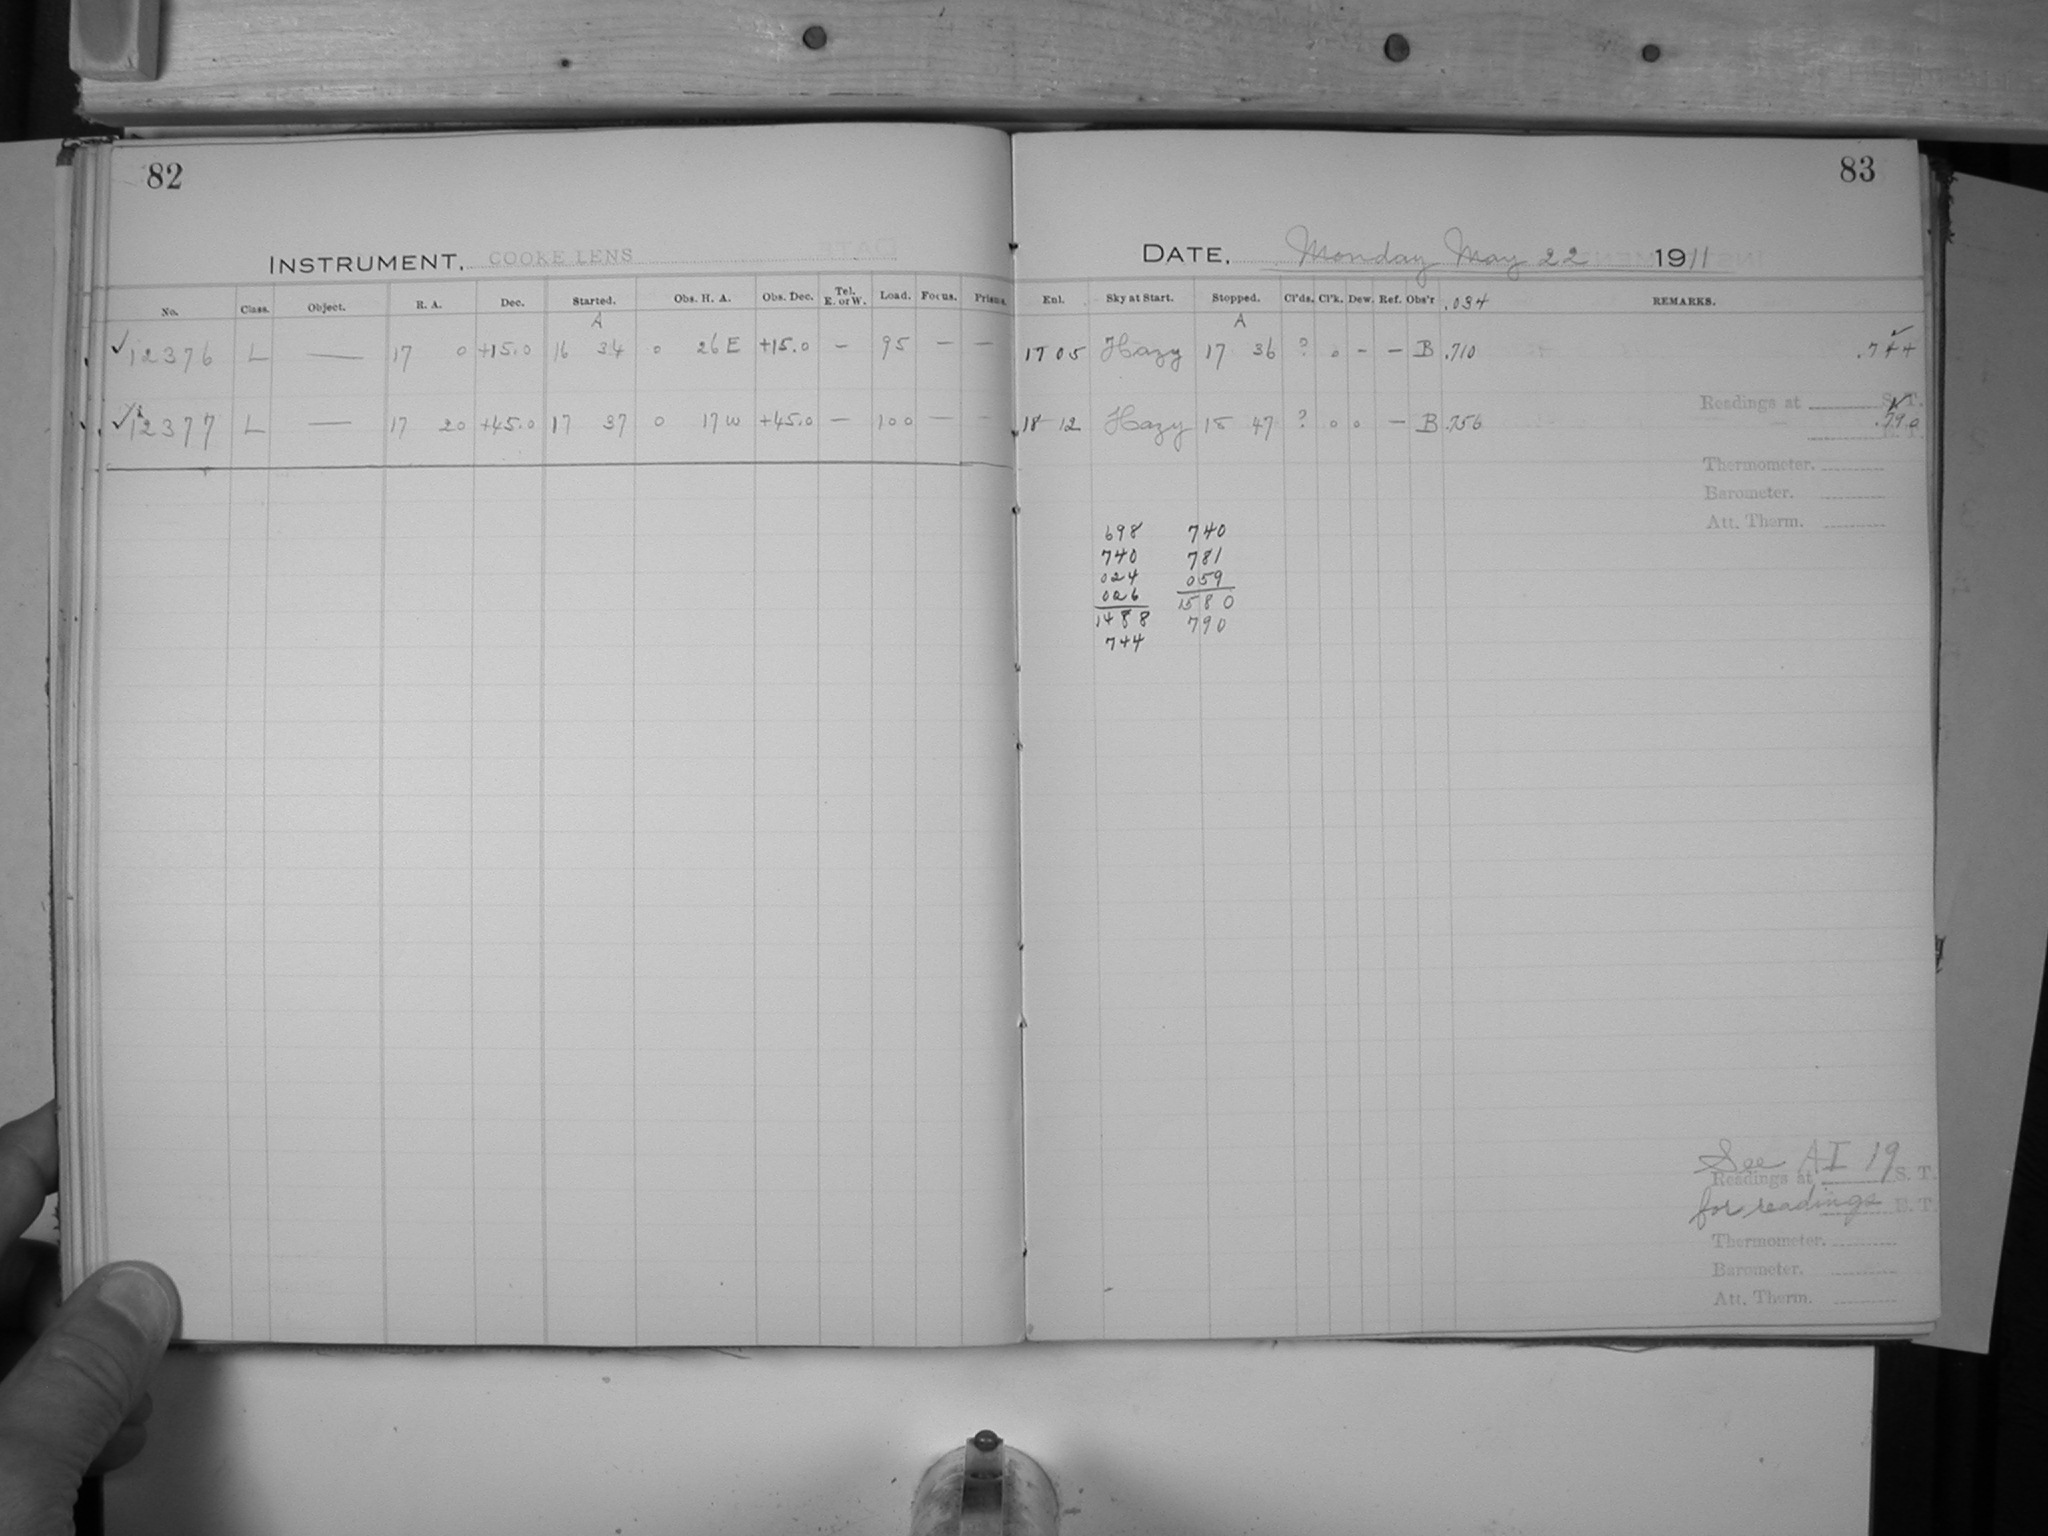 82
INSTRUMENT, COOKE LENS
No. Class. Object. R. A. Dec. Started. Obs. H. A. Obs. Dec. Tel. E. or W. Load. Focus. Prisms.
A
✓12376 L — 17 0 +15.0 16 34 0 26 E +15.0 — 95 — —
✓12377 L — 17 20 +45.0 17 37 0 17 W +45.0 — 100 — —
83
DATE, Monday May 22 1911
Enl. Sky at Start. Stopped. Cl'ds. Cl'k. Dew. Ref. Obs'r .034 REMARKS.
A
17 05 Hazy 17 36 ? 0 - — B .710 .744
Readings at S. T.
18 12 Hazy 18 47 ? 0 0 — B .756 .790
Thermometer.
Barometer.
Att. Therm.
698 740
740 781
024 059
026 1580
1488 790
744
See AI 19
Readings at S. T.
for readings E. T.
Thermometer.
Barometer.
Att. Therm.